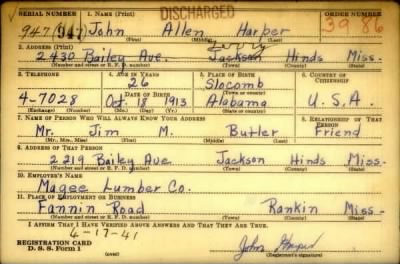 DISCHARGED
SERIAL NUMBER 1. NAME (Print) ORDER NUMBER
947 (947) John Allen Harper 3986
(First) (Middle) (Last)
2. ADDRESS (Print)
2430 Bailey Ave. Jackson Hinds Miss.
(Number and street or R. F. D. number) (Town) (County) (State)
3. TELEPHONE 4. AGE IN YEARS 5. PLACE OF BIRTH 6. COUNTRY OF CITIZENSHIP
26 Slocomb
DATE OF BIRTH (Town or county)
4-7028 Oct. 18 1913 Alabama U.S.A.
(Exchange) (Number) (Mo.) (Day) (Yr.) (State or country)
7. NAME OF PERSON WHO WILL ALWAYS KNOW YOUR ADDRESS 8. RELATIONSHIP OF THAT PERSON
Mr. Jim M. Butler Friend
(Mr., Mrs., Miss) (First) (Middle) (Last)
9. ADDRESS OF THAT PERSON
2219 Bailey Ave Jackson Hinds Miss.
(Number and street or R. F. D. number) (Town) (County) (State)
10. EMPLOYER'S NAME
Magee Lumber Co.
11. PLACE OF EMPLOYMENT OR BUSINESS
Fannin Road Rankin Miss.
(Number and street or R. F. D. number) (Town) (County) (State)
I AFFIRM THAT I HAVE VERIFIED ABOVE ANSWERS AND THAT THEY ARE TRUE.
4-17-41
REGISTRATION CARD
D. S. S. Form 1 (over) John Harper
(Registrant's signature)